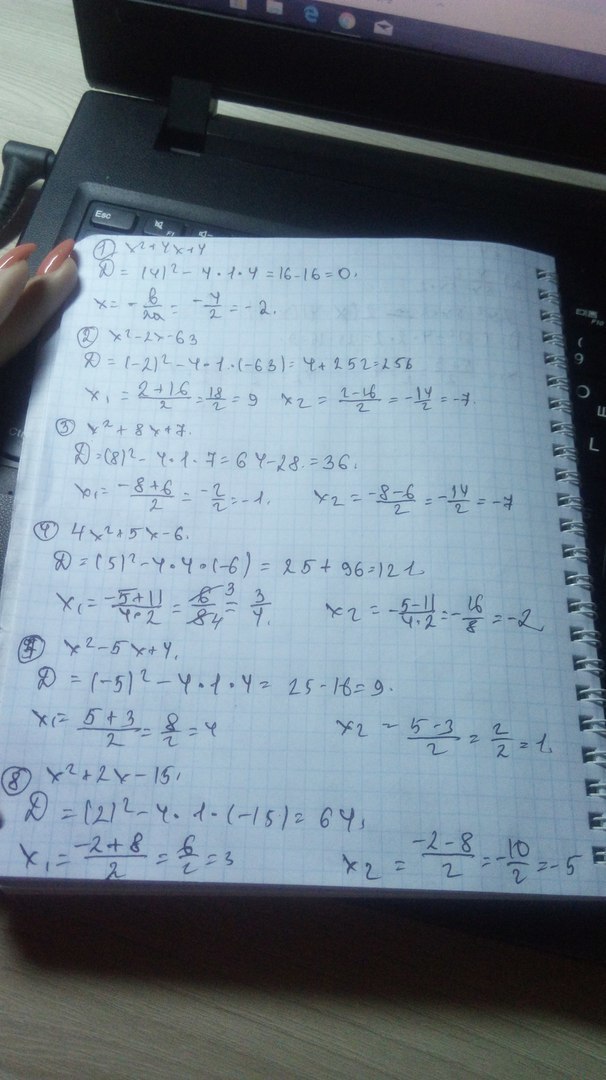 Esc
F1
① x²+4x+4
D = (4)² - 4·1·4 = 16-16 = 0.
x = - b/2a = - 4/2 = -2.
② x²-2x-63
D = (-2)² - 4·1·(-63) = 4+252 = 256
x₁ = 2+16/2 = 18/2 = 9 x₂ = 2-16/2 = -14/2 = -7.
③ x²+8x+7.
D = (8)² - 4·1·7 = 64-28 = 36.
x₁ = -8+6/2 = -2/2 = -1. x₂ = -8-6/2 = -14/2 = -7
④ 4x²+5x-6.
D = (5)² - 4·4·(-6) = 25+96 = 121
x₁ = -5+11/4·2 = 6/8 3/4 = 3/4. x₂ = -5-11/4·2 = -16/8 = -2
⑦ x²-5x+4.
D = (-5)² - 4·1·4 = 25-16 = 9.
x₁ = 5+3/2 = 8/2 = 4 x₂ = 5-3/2 = 2/2 = 1.
⑧ x²+2x-15.
D = (2)² - 4·1·(-15) = 64.
x₁ = -2+8/2 = 6/2 = 3 x₂ = -2-8/2 = -10/2 = -5